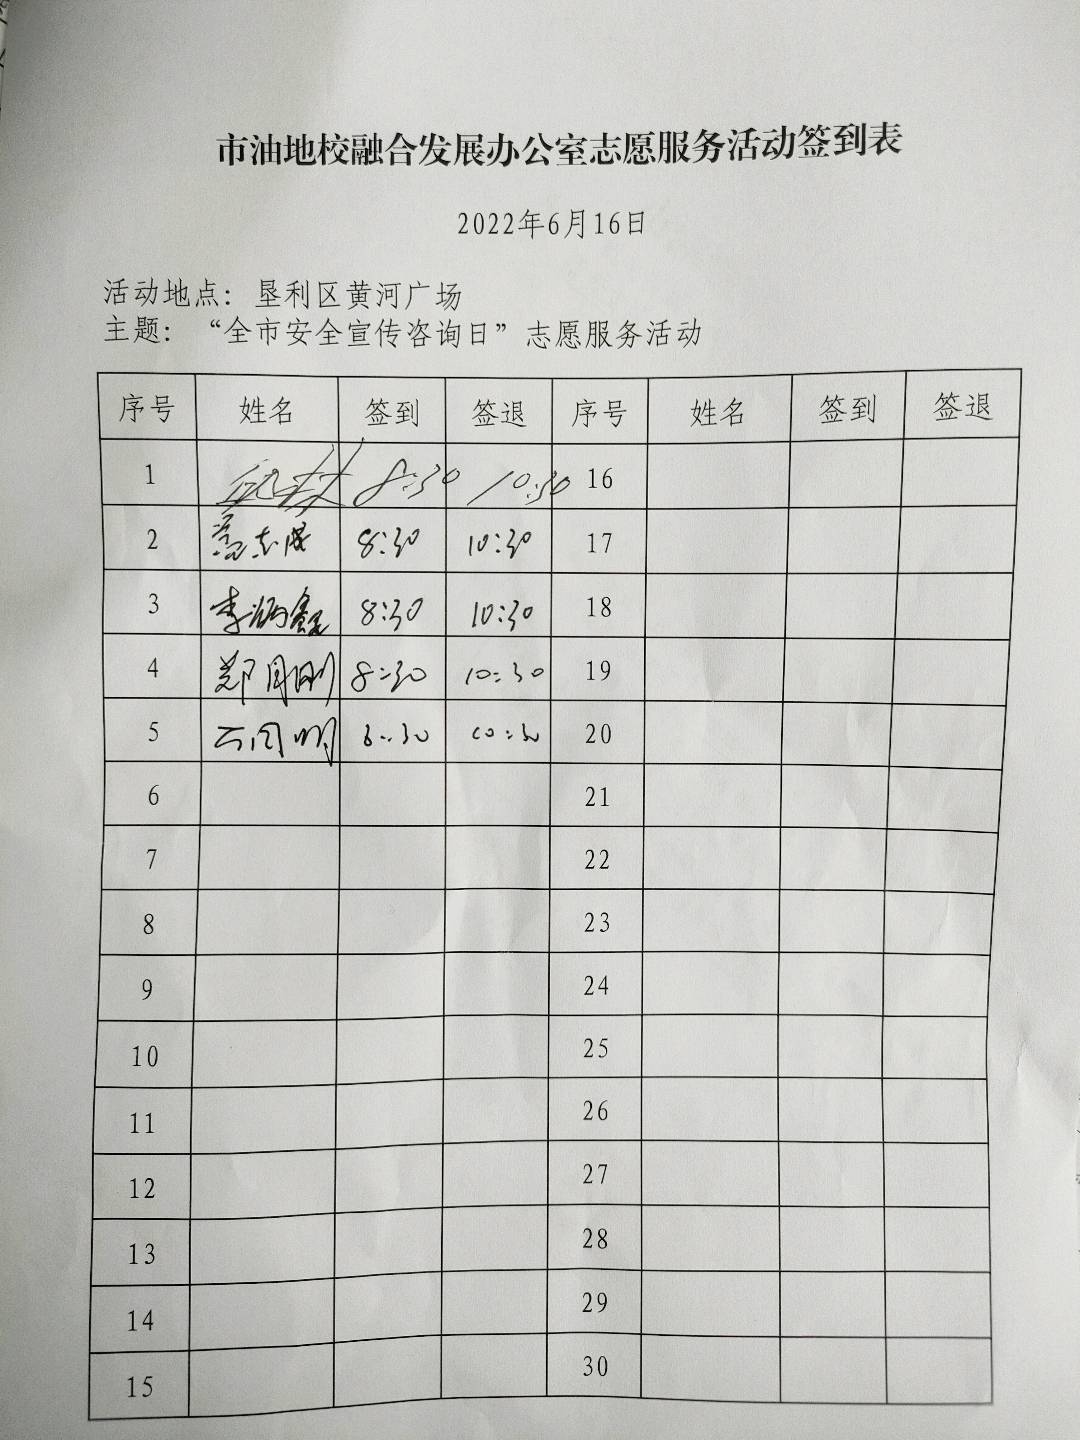 市油地校融合发展办公室志愿服务活动签到表
2022年6月16日
活动地点：垦利区黄河广场
主题：“全市安全宣传咨询日”志愿服务活动
序号 姓名 签到 签退 序号 姓名 签到 签退
1 8:30 10:30 16
2 8:30 10:30 17
3 李炳鑫 8:30 10:30 18
4 郑月刚 8:30 10:30 19
5 8:30 10:30 20
6 21
7 22
8 23
9 24
10 25
11 26
12 27
13 28
14 29
15 30